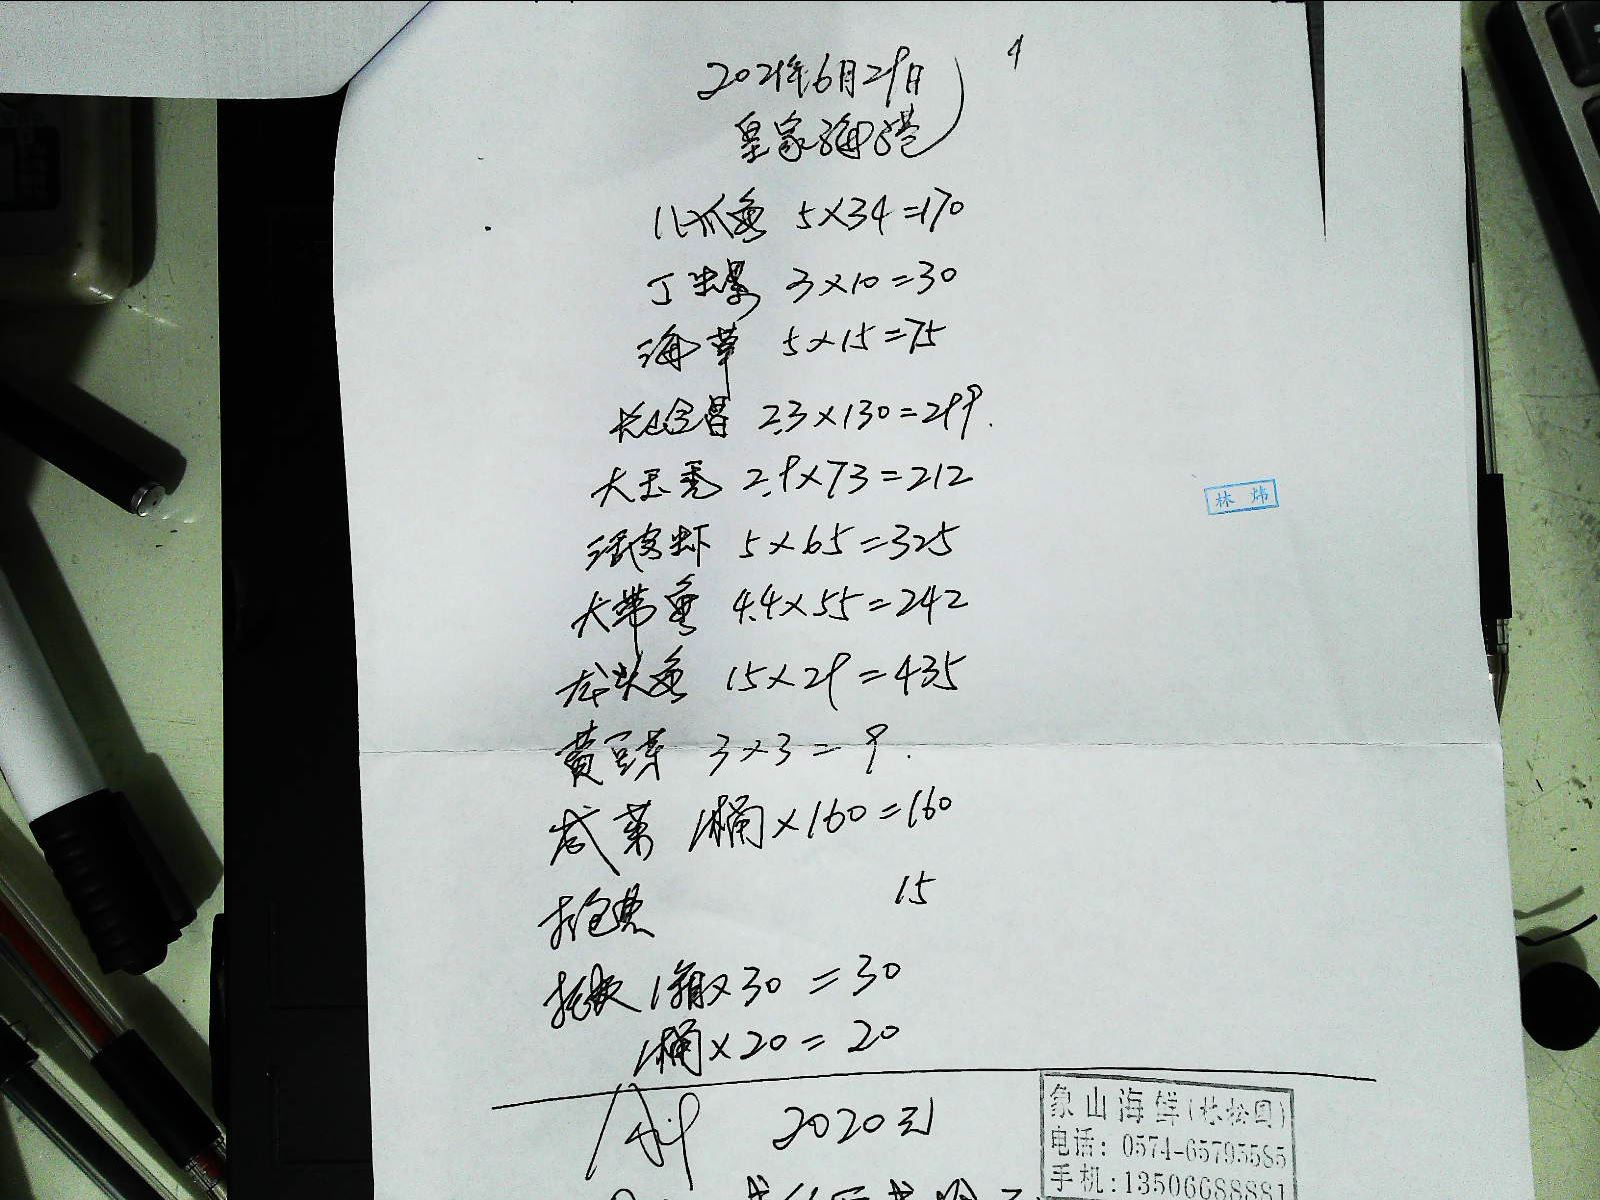 4
2021年6月29日
皇家海港
八爪鱼 5×34=170
丁螺 3×10=30
海草 5×15=75
2.3×130=299.
大玉秃 2.9×73=212
活 虾 5×65=325
大带鱼 4.4×55=242
龙头鱼 15×29=435
黄豆芽 3×3=9.
咸菜 1桶×160=160
15
1箱×30=30
1桶×20=20
2020元
林炜
象山海鲜(林松国)
电话:0574-65795585
手机:13506688881